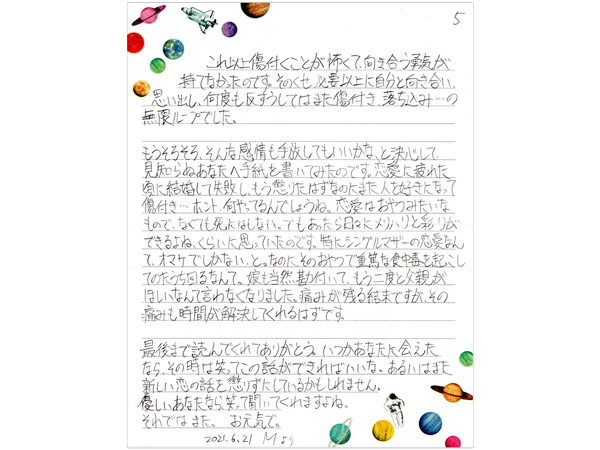 5
これ以上傷付くことが怖くて、向き合う勇気が
持てなかったのです。そのくせ、必要以上に自分と向き合い、
思い出し、何度も反すうしてはまた傷付き、落ち込み…の
無限ループでした。
もうそろそろ、そんな感情も手放してもいいかな、と決心して、
見知らぬあなたへ手紙を書いてみたのです。恋愛に疲れた
頃に結婚して失敗し、もう懲りたはずなのにまた人を好きになって
傷付き…ホント、何やってるんでしょうね。恋愛はおやつみたいな
もので、なくても死にはしない。でもあったら日々にメリハリと彩りが
できるよね、くらいに思っていたのです。特にシングルマザーの恋愛なん
て、オマケでしかない、と。なのにそのおやつで重篤な食中毒を起こし
てのたうち回るなんて。娘も当然勘付いて、もう二度と父親が
ほしいなんて言わなくなりました。痛みが残る結末ですが、その
痛みも時間が解決してくれるはずです。
最後まで読んでくれてありがとう。いつかあなたに会えた
なら、その時は笑ってこの話ができればいいな。あるいはまた
新しい恋の話を懲りずにしているかもしれません。
優しいあなたなら、笑って聞いてくれますよね。
それではまた。 お元気で。
2021.6.21 Mより